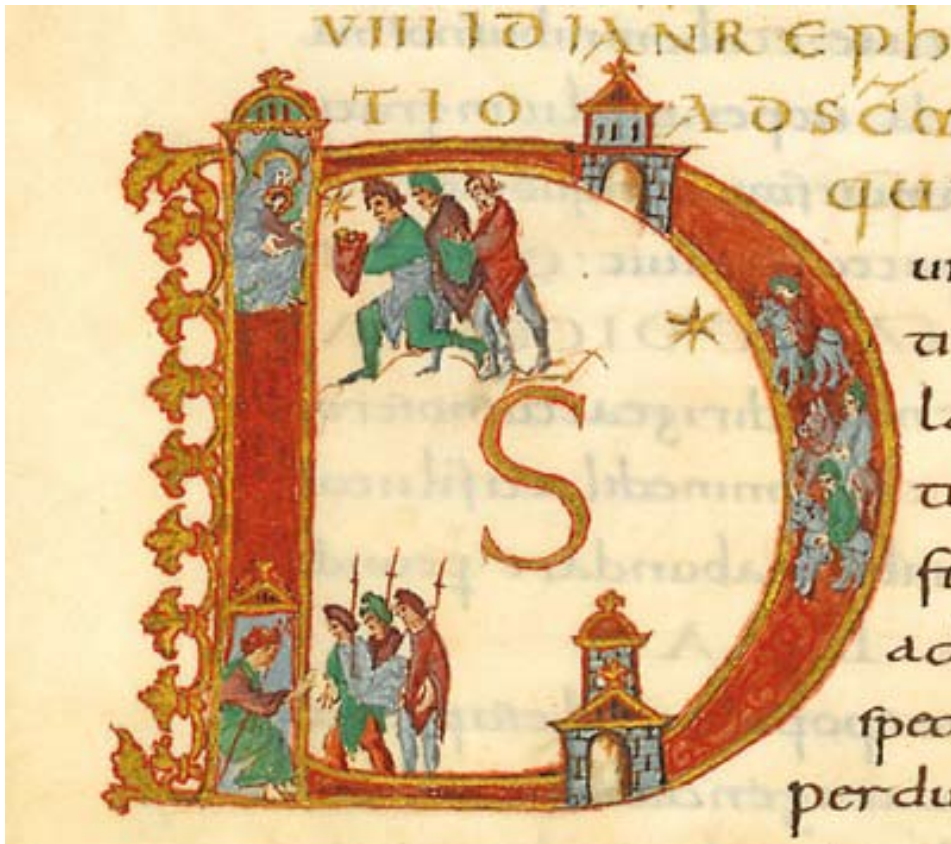 VIIII IDIANR EPIph
TIO ADSCM
DS
qu
un
a
la
a
st
ac
spec
perdu